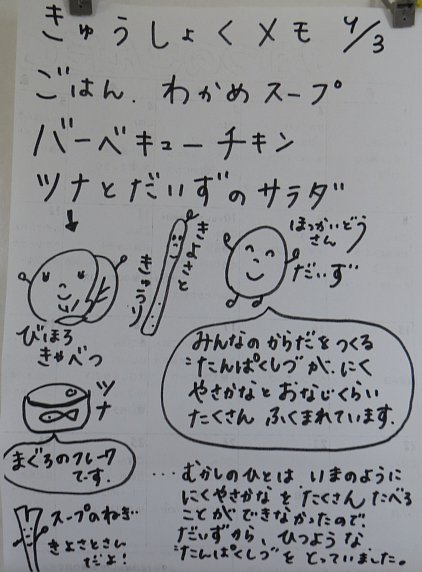 きゅうしょくメモ 4/3
ごはん. わかめスープ
バーベキューチキン
ツナとだいずのサラダ
びほろ
きゃべつ
きよさと
きゅうり
ほっかいどう
さん
だいず
みんなのからだをつくる
たんぱくしつが、にく
やさかなとおなじくらい
たくさんふくまれています.
ツナ
まぐろのフレーク
です.
スープのねぎ
きよさとさん
だよ!
…むかしのひとはいまのように
にくやさかなをたくさんたべる
ことができなかったので、
だいずから、ひつような
たんぱくしつをとっていました。